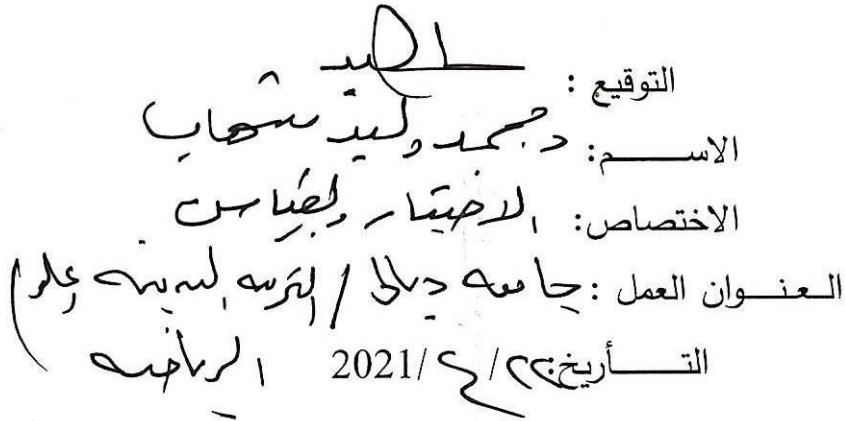 التوقيع :
الاســــم: د. محمد وليد شهاب
الاختصاص: الاختبار والقياس
العنــوان العمل : جامعة ديالى / التربية البدنية وعلوم
الرياضية
التـــأريخ: ٢٢/٤/2021